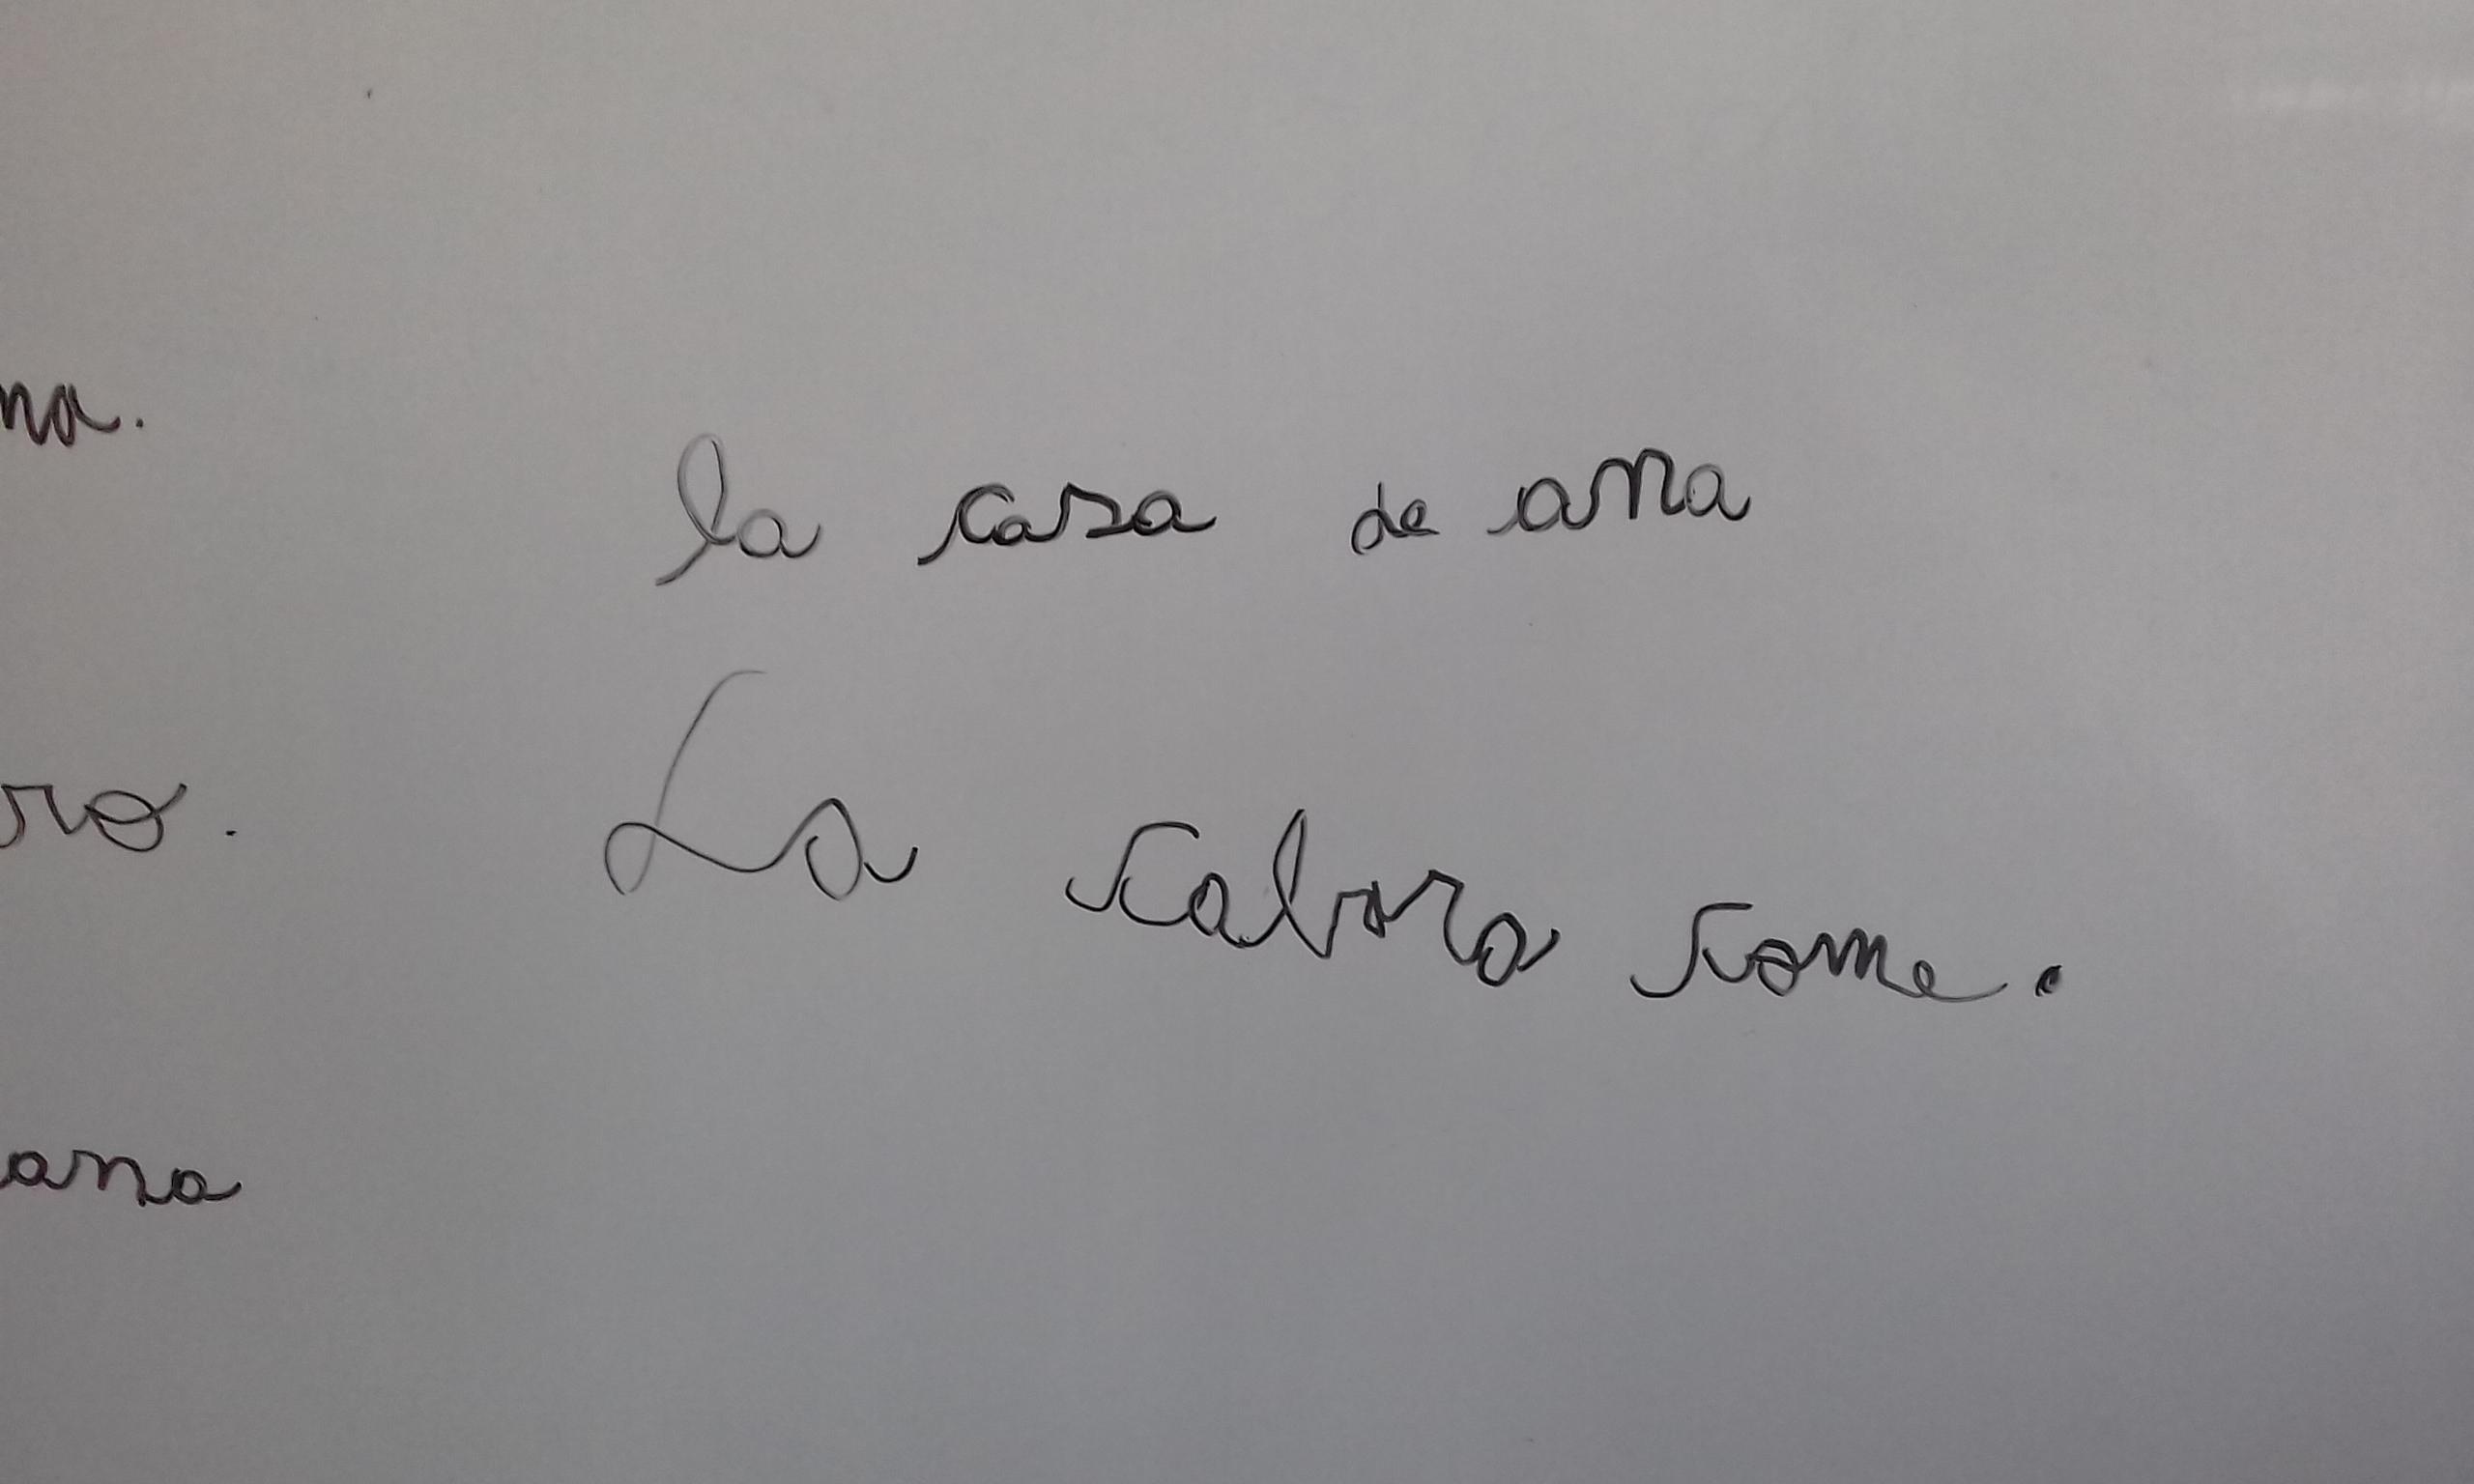 na.
la casa de ana
ro.
La cabra come.
ana